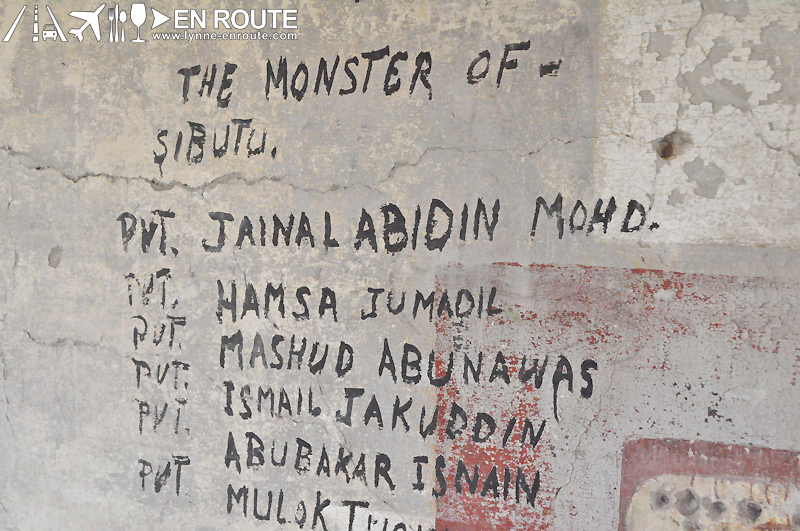 EN ROUTE
www.lynne-enroute.com
THE MONSTER OF -
SIBUTU.
PVT. JAINAL ABIDIN MOHD.
PVT. HAMSA JUMADIL
PVT. MASHUD ABUNAWAS
PVT. ISMAIL JAKUDDIN
PVT. ABUBAKAR ISNAIN
PVT MULOK